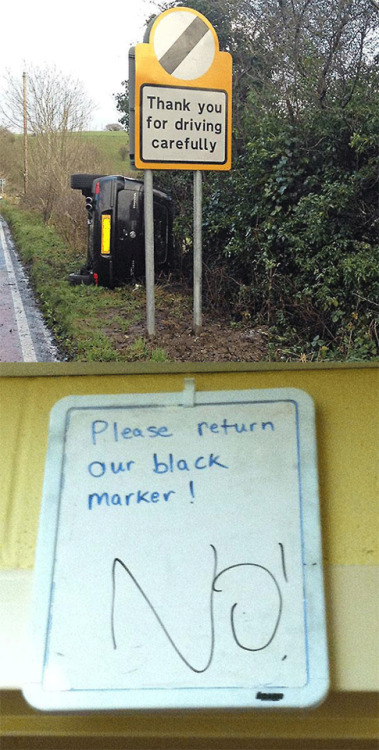 Thank you
for driving
carefully
Please return
our black
marker!
NO!